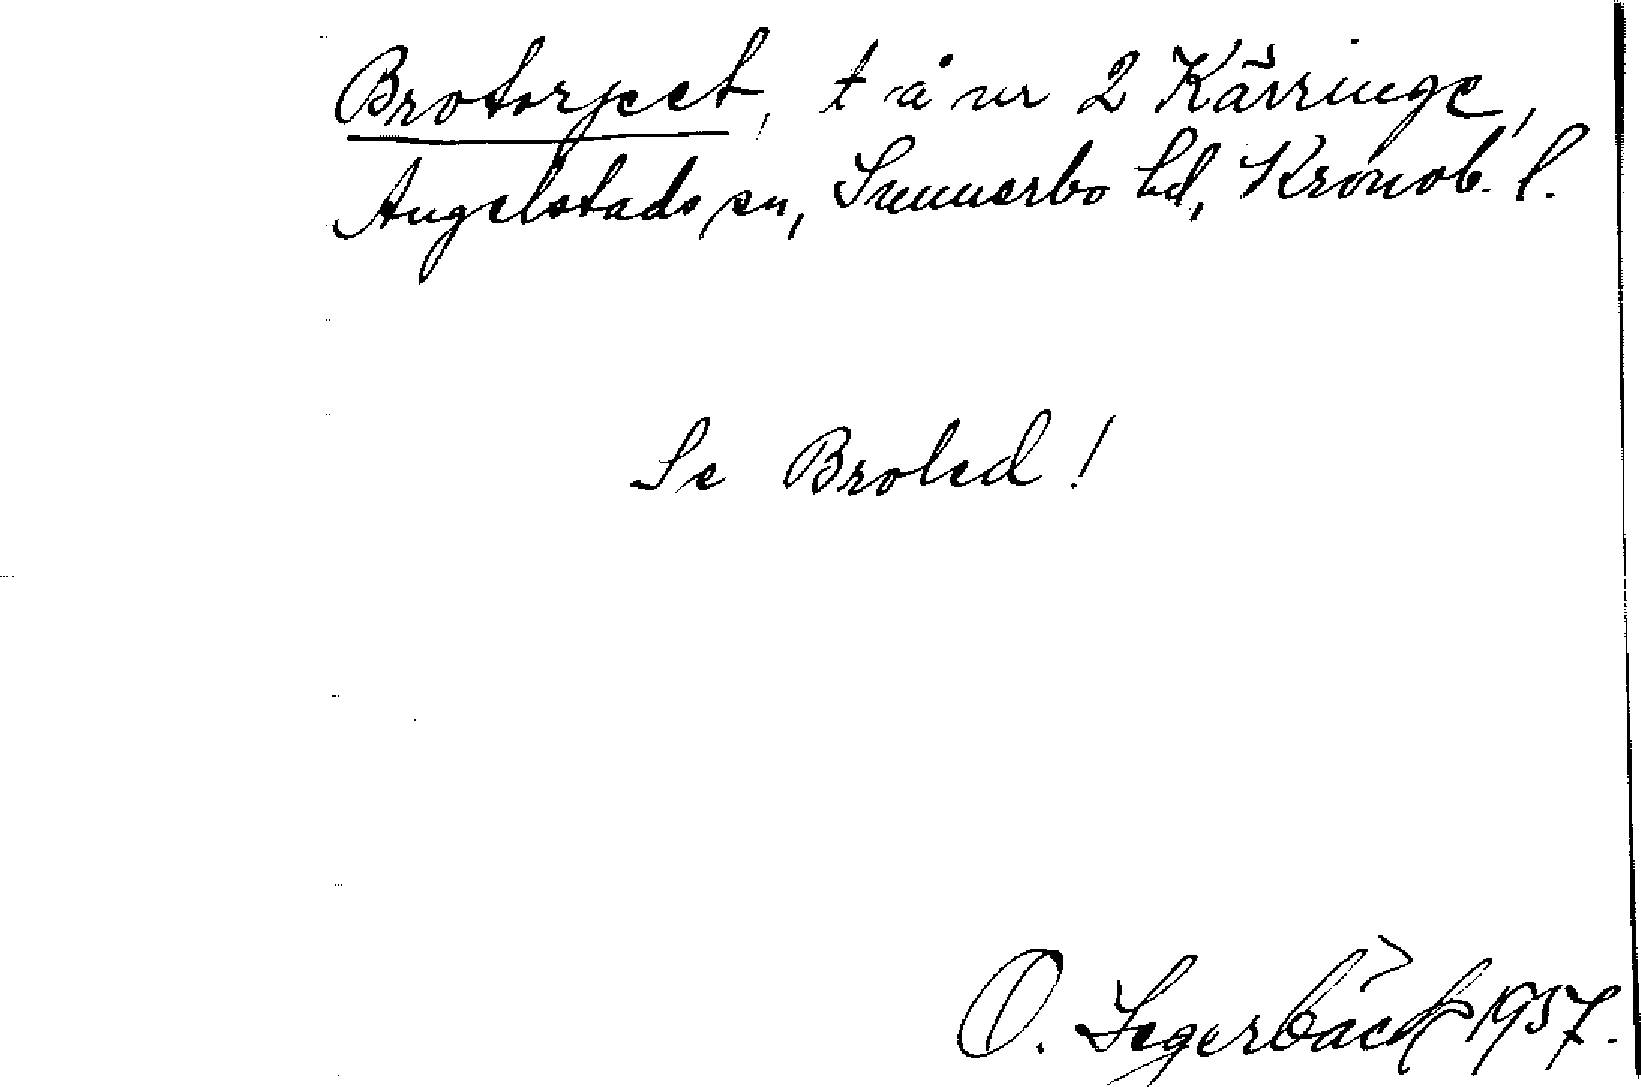 Brotorpet, t å nr 2 Kärringe,
Angelstads sn, Sunnerbo hd, Kronob. l.
Se Broled!
O. Segerbäck 1957.